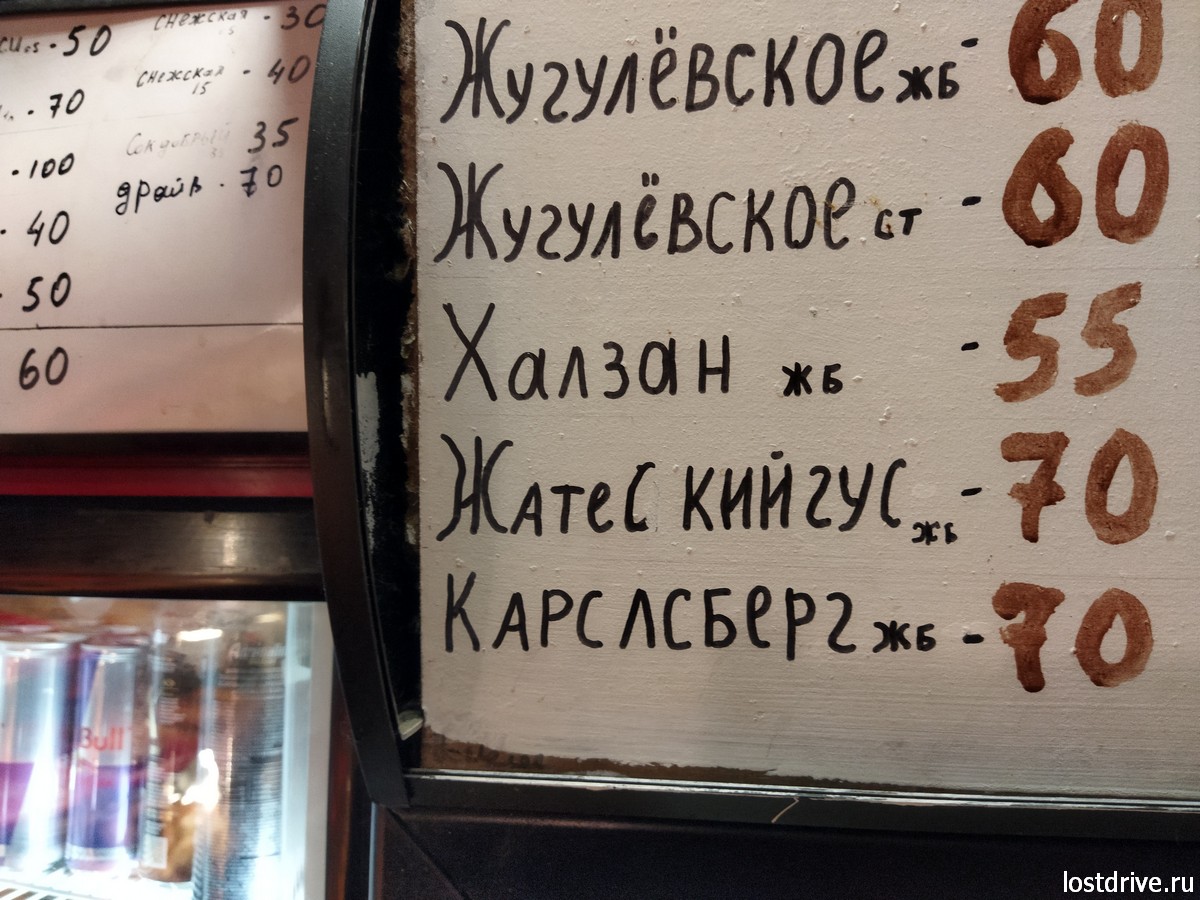 50
70
100
40
50
60
Снежская - 30
Снежская - 40
15
Сок добрый 35
драйв - 70
Жугулёвское жб - 60
Жугулёвское ст - 60
Халзан жб - 55
Жатес кийгус жб - 70
Карслсберг жб - 70
Bull
lostdrive.ru